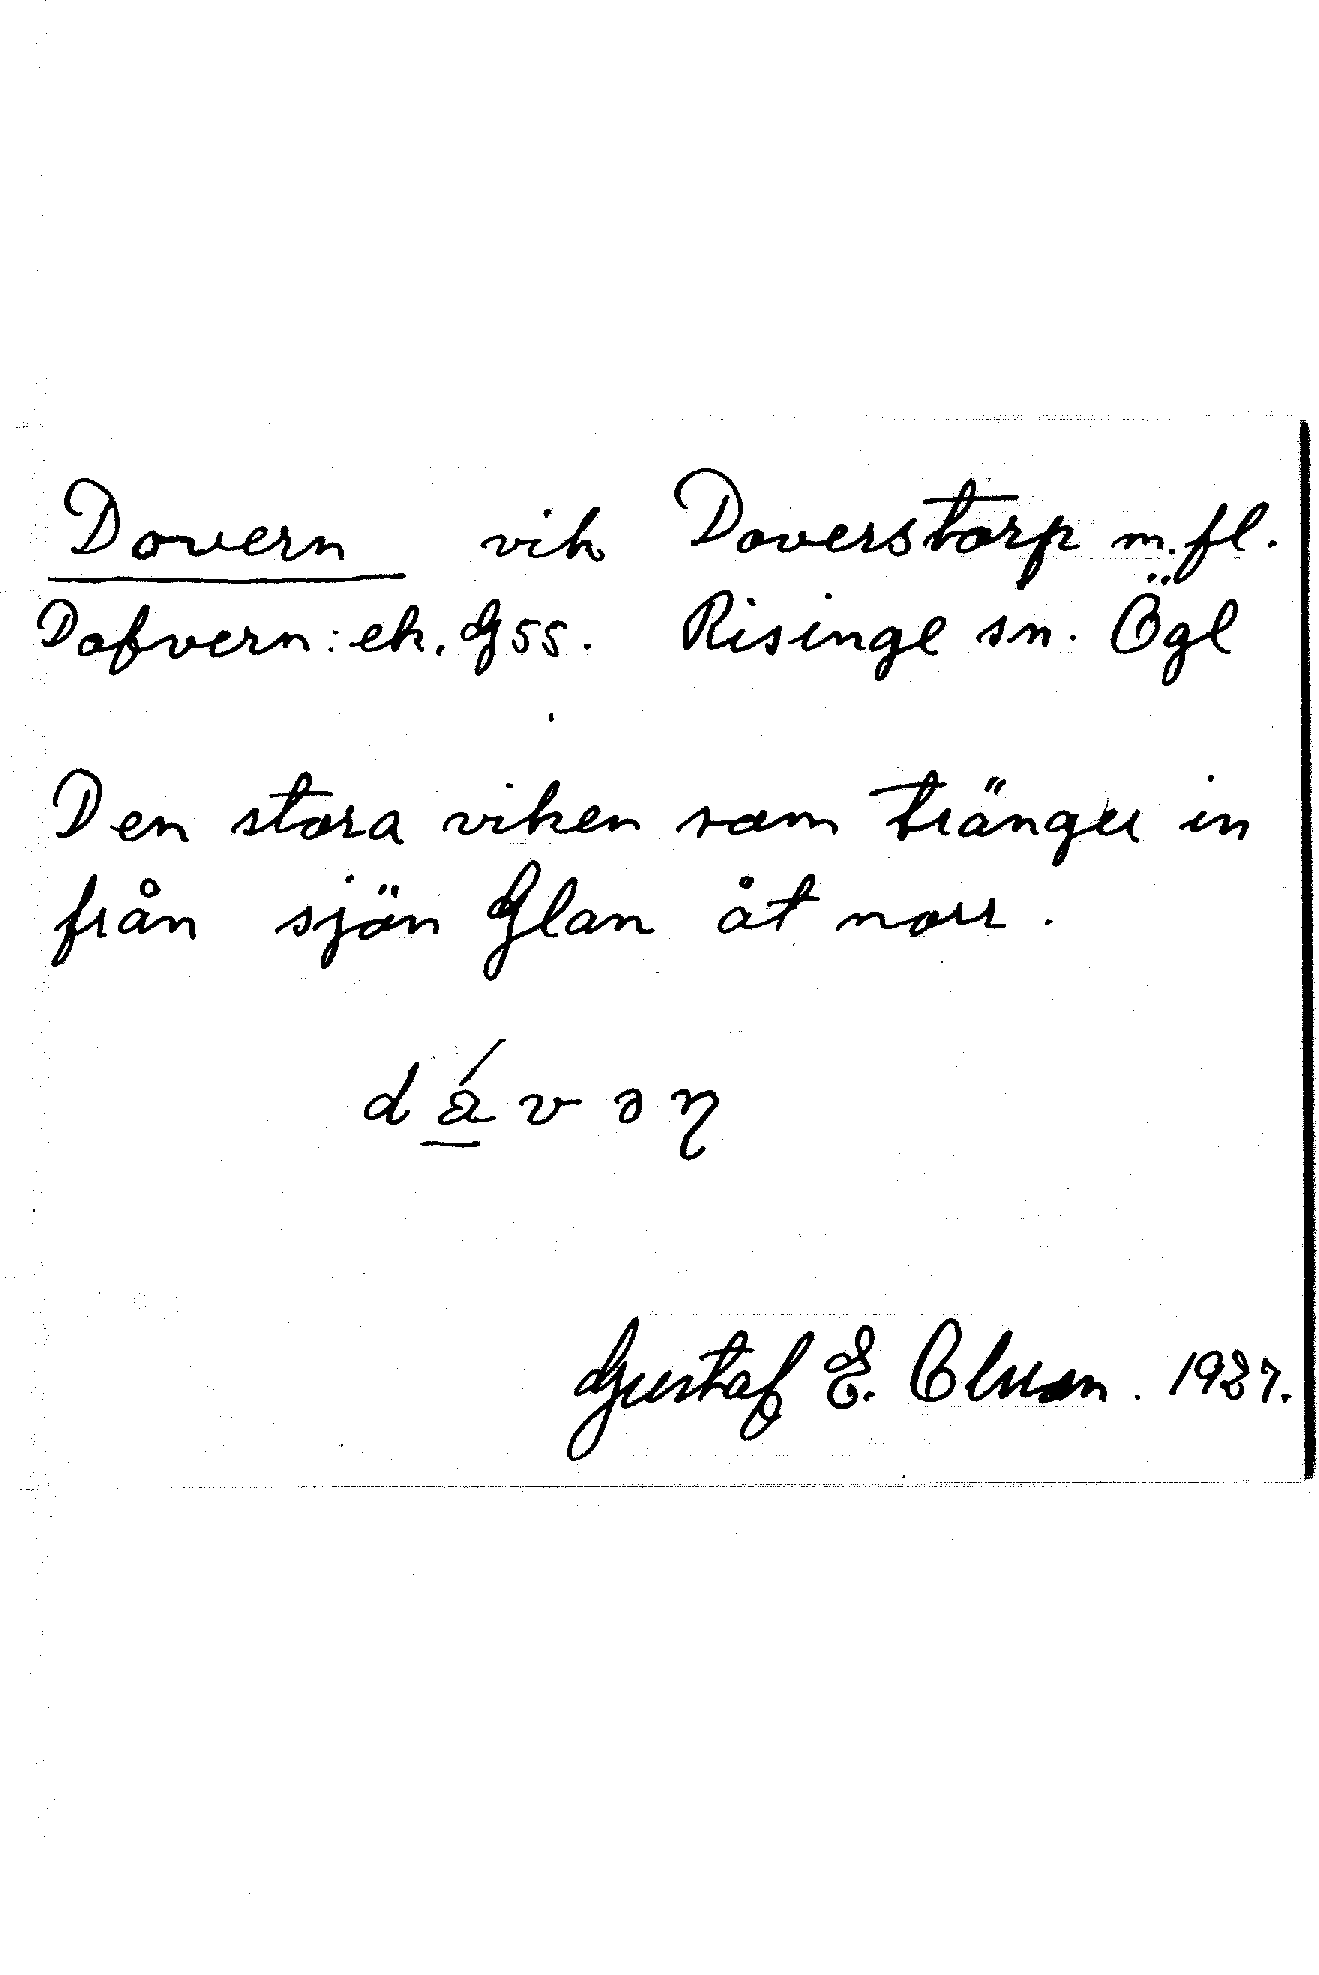 Dovern vik Doverstorp m.fl.
Dofvern: ek. G55. Risinge sn. Ögl
Den stora viken som tränger in
från sjön Glan åt norr.
Gustaf E. Clsson. 1927.